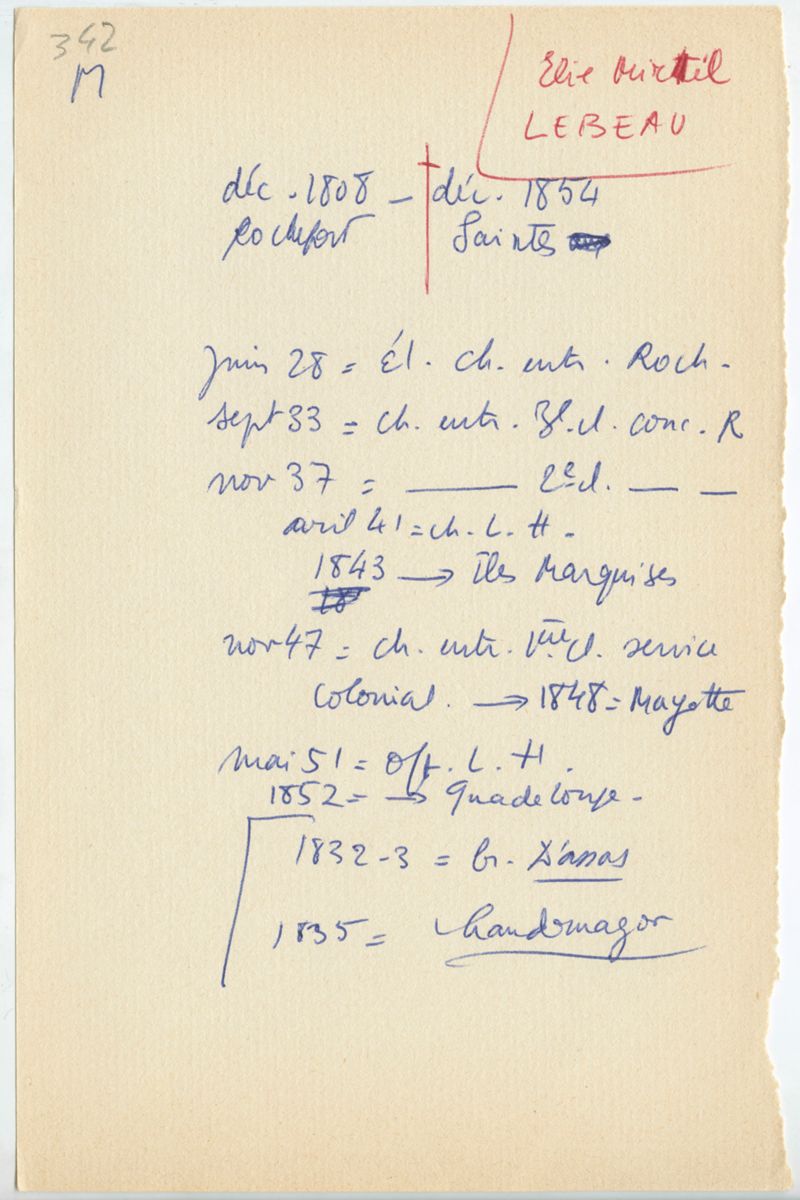 342
M
Elie Mirtil
LEBEAU
déc. 1808 - † déc. 1854
Rochefort Saintes
juin 28 = Él. ch. entr. Roch.
sept 33 = ch. entr. 3e cl. conc. R
nov 37 = ——— 2e cl. — —
avril 41 = ch. L. H.
1843 → Îles Marquises
nov 47 = ch. entr. 1ère cl. service
colonial. → 1848 = Mayotte
mai 51 = off. L. H.
1852 = → Guadeloupe.
1832-3 = br. D'assas
1835 = Chandernagor